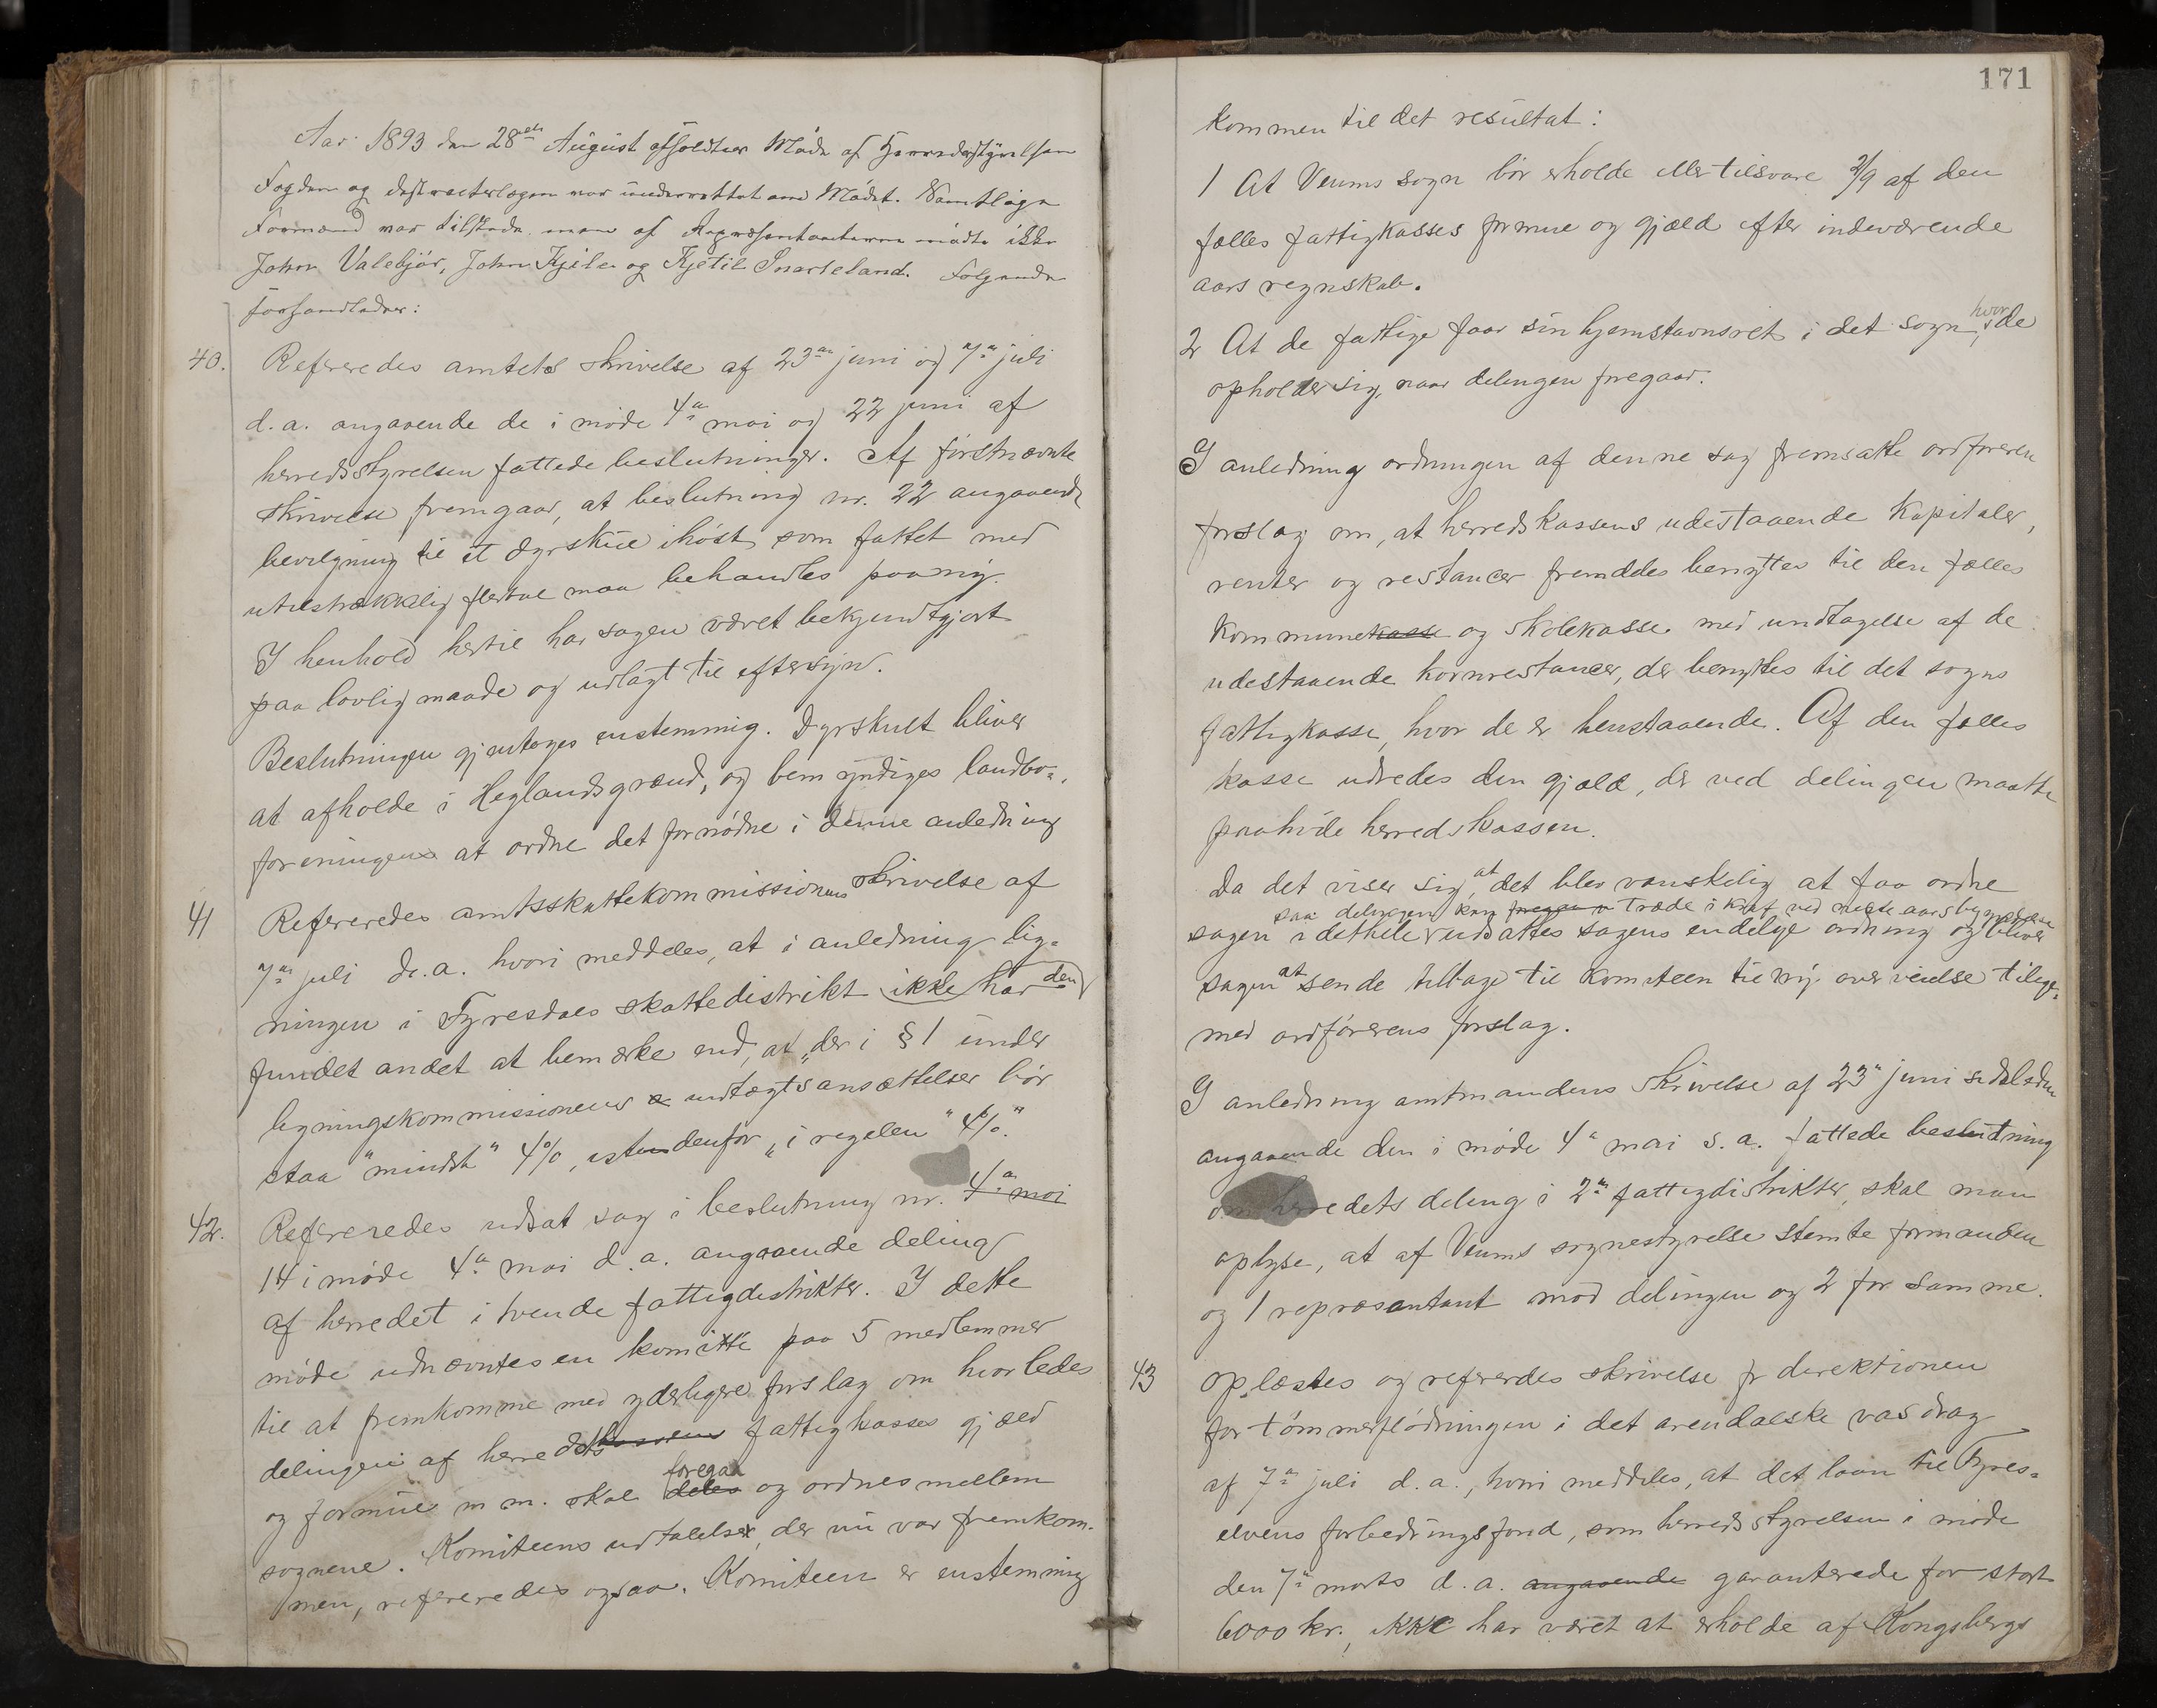 Aar 1893 den 28de August afholdtes Møde af Herredsstyrelsen
Fogden og distrikterlægen var underrettet om Mødet. Samtlige
Formænd var tilstede men af Repræsentanterne mødte ikke
John Valebjør, John Kjile og Kjetil Snarteland. Følgende
forhandledes:
40. Refereredes amtets skrivelse af 23de juni og 7de juli
d. a. angaaende de i møde 4de mai og 22 juni af
herredsstyrelsen fattede beslutninger. Af førstnævnte
skrivelse fremgaar, at beslutning nr. 22 angaaende
bevilgning til et dyrskue ihøst, som fattet med
utilstrækkelig flertal maa behandles paany.
I henhold hertil har sagen været bekjendtgjort
paa lovlig maade og udlagt til eftersyn.
Beslutningen gjentoges enstemmig. Dyrskuet bliver
at afholde i Heglandsgrænd, og bemyndiges landbo-
foreningens at ordne det fornødne i denne anledning
41 Refereredes amtsskattekommissionens skrivelse af
7de juli d. a. hvori meddeles, at i anledning lig-
ningen i Fyresdals skattedistrikt ikke har den
fundet andet at bemærke end, at "der i § 1 under
ligningskommissionens indtægtsansættelser bør
staa "mindst" 4%, istendenfor "i regelen" 4%."
42. Refereredes udsat sag i beslutning nr. 4de mai
14 i møde 4de mai d. a. angaaende deling
af herredet i tvende fattigdistrikter. I dette
møde udnævntes en komitté paa 5 medlemmer
til at fremkomme med yderligere forslag om hvorledes
delingen af herredets kassens fattigkasses gjæld
og formue m m. skal deles foregaa og ordnes mellem
sognene. Komiteens udtalelser, der nu var fremkom-
men, refereredes ogsaa. Komiteen er enstemmig
171
kommen til det resultat:
1 At Veums sogn bør erholde eller tilsvare 2/9 af den
fælles fattigkasses formue og gjæld efter indeværende
aars regnskab.
2 At de fattige faar sin hjemstavnsret i det sogn, hvor de
opholder sig, naar delingen foregaar.
I anledning ordningen af denne sag fremsatte ordføreren
forslag om, at herredskassens udestaaende kapitaler,
renter og restancer fremdeles benyttes til den fælles
kommunekasse og skolekasse med undtagelse af de
udestaaende kornrestancer, der benyttes til det sogns
fattigkasse, hvor de er henstaaende. Af den fælles
kasse udredes den gjæld, der ved delingen maatte
paahvile herredskassen.
Da det viser sig, at det blev vanskelig at faa ordne
saa delingen kan træde i kraft ved næste aars begyndelse
sagen i dethele udsattes sagens endelige ordning og bliver
sagen at sende tilbage til komiteen til ny overveielse tilige-
med ordførerens forslag.
I anledning amtmandens skrivelse af 23de juni sidstleden
angaaende den i møde 4de mai s. a. fattede beslutning
om herredets deling i 2de fattigdistrikter, skal man
oplyse, at af Veums sognestyrelse stemte formanden
og 1 repræsentant mod delingen og 2 for samme.
43 Oplæstes og refereredes skrivelse fr direktionen
for tømmerflødningen i det arendalske vasdrag
af 7de juli d. a., hvori meddeles, at det laan til Fyres-
elvens forbedringsfond, som herredsstyrelsen i møde
den 7de marts d. a. angaaende garanterede for stort
6000 kr., ikke har været at erholde af Kongsbergs